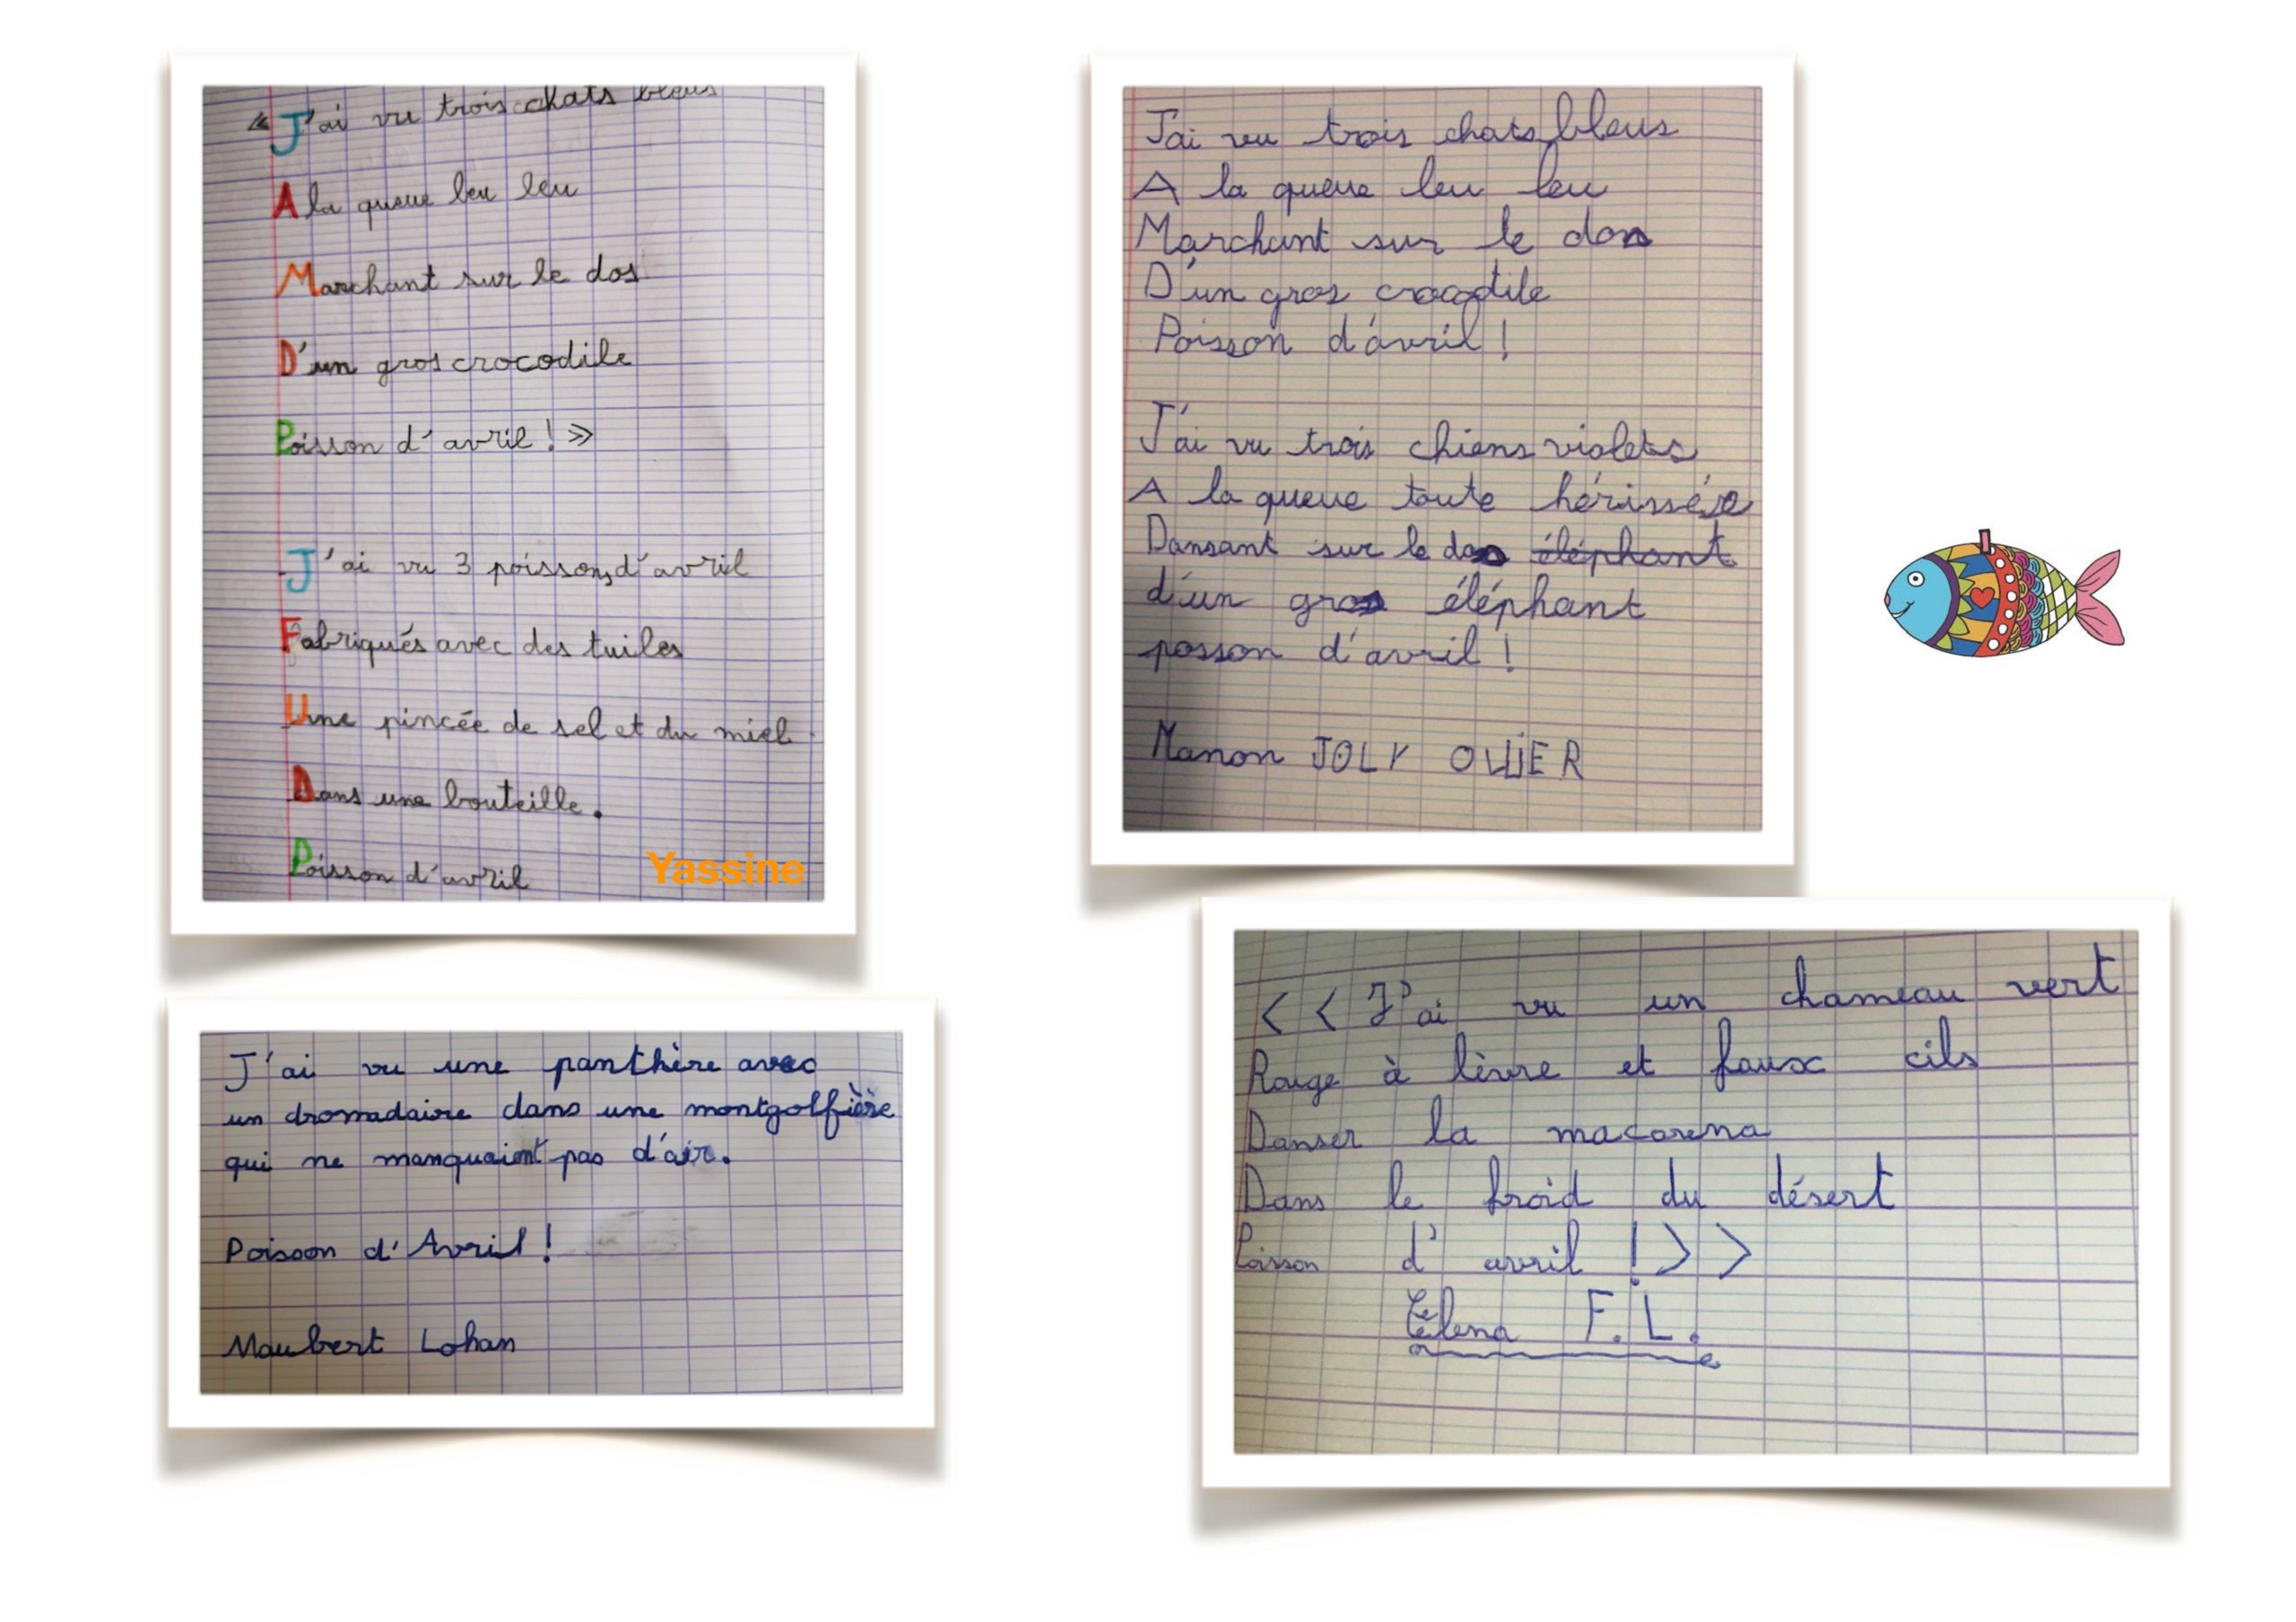 « J'ai vu trois chats bleus
A la queue leu leu
Marchant sur le dos
D'un gros crocodile
Poisson d'avril ! »
J'ai vu 3 poissons d'avril
Fabriqués avec des tuiles
Une pincée de sel et du miel
Dans une bouteille.
Poisson d'avril
Yassine
J'ai vu trois chats bleus
A la queue leu leu
Marchant sur le dos
D'un gros crocodile
Poisson d'avril !
J'ai vu trois chiens violets
A la queue toute hérissée
Dansant sur le dos éléphant
d'un gros éléphant
posson d'avril !
Manon JOLY OLLIER
J'ai vu une panthère avec
un dromadaire dans une montgolfière
qui ne manquaient pas d'air.
Poisson d'Avril !
Maubert Lohan
<< J'ai vu un chameau vert
Rouge à lèvre et faux cils
Danser la macarena
Dans le froid du désert
Poisson d'avril ! >>
Elena F.L.